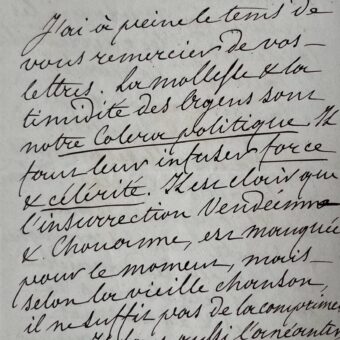 J'ai à peine le tems de
vous remercier de vos
lettres. La mollesse & la
timidité des agens sont
notre Colera politique Il
faut leur infuser force
& célérité. Il est clair que
l'insurrection Vendéenne
& Chouanne, est manquée
pour le moment, mais
selon la vieille chanson,
il ne suffit pas de la comprimer
aussi l'anéantir